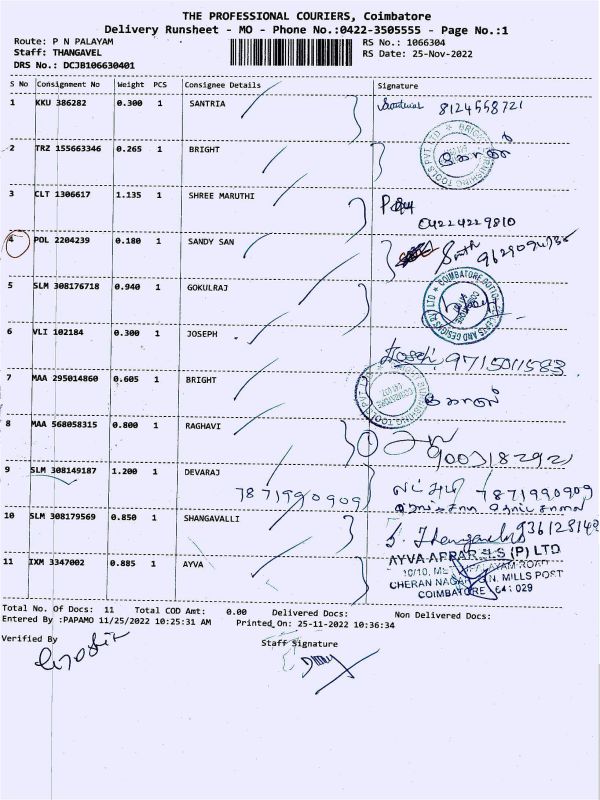 THE PROFESSIONAL COURIERS, Coimbatore
Delivery Runsheet - MO - Phone No.:0422-3505555 - Page No.:1
Route: P N PALAYAM RS No.: 1066304
Staff: THANGAVEL RS Date: 25-Nov-2022
DRS No.: DCJB106630401
S No Consignment No Weight PCS Consignee Details Signature
1 KKU 386282 0.300 1 SANTRIA 8124558721
2 TRZ 155663346 0.265 1 BRIGHT
3 CLT 1306617 1.135 1 SHREE MARUTHI
04224229810
4 POL 2204239 0.180 1 SANDY SAN
5 SLM 308176718 0.940 1 GOKULRAJ
6 VLI 102184 0.300 1 JOSEPH
Joseph 9715011583
7 MAA 295014860 0.605 1 BRIGHT
8 MAA 568058315 0.800 1 RAGHAVI
9 SLM 308149187 1.200 1 DEVARAJ
7871990909 7871990909
10 SLM 308179569 0.850 1 SHANGAVALLI
11 IXM 3347002 0.885 1 AYVA
COIMBATORE
Total No. Of Docs: 11 Total COD Amt: 0.00 Delivered Docs: Non Delivered Docs:
Entered By :PAPAMO 11/25/2022 10:25:31 AM Printed On: 25-11-2022 10:36:34
Verified By Staff Signature